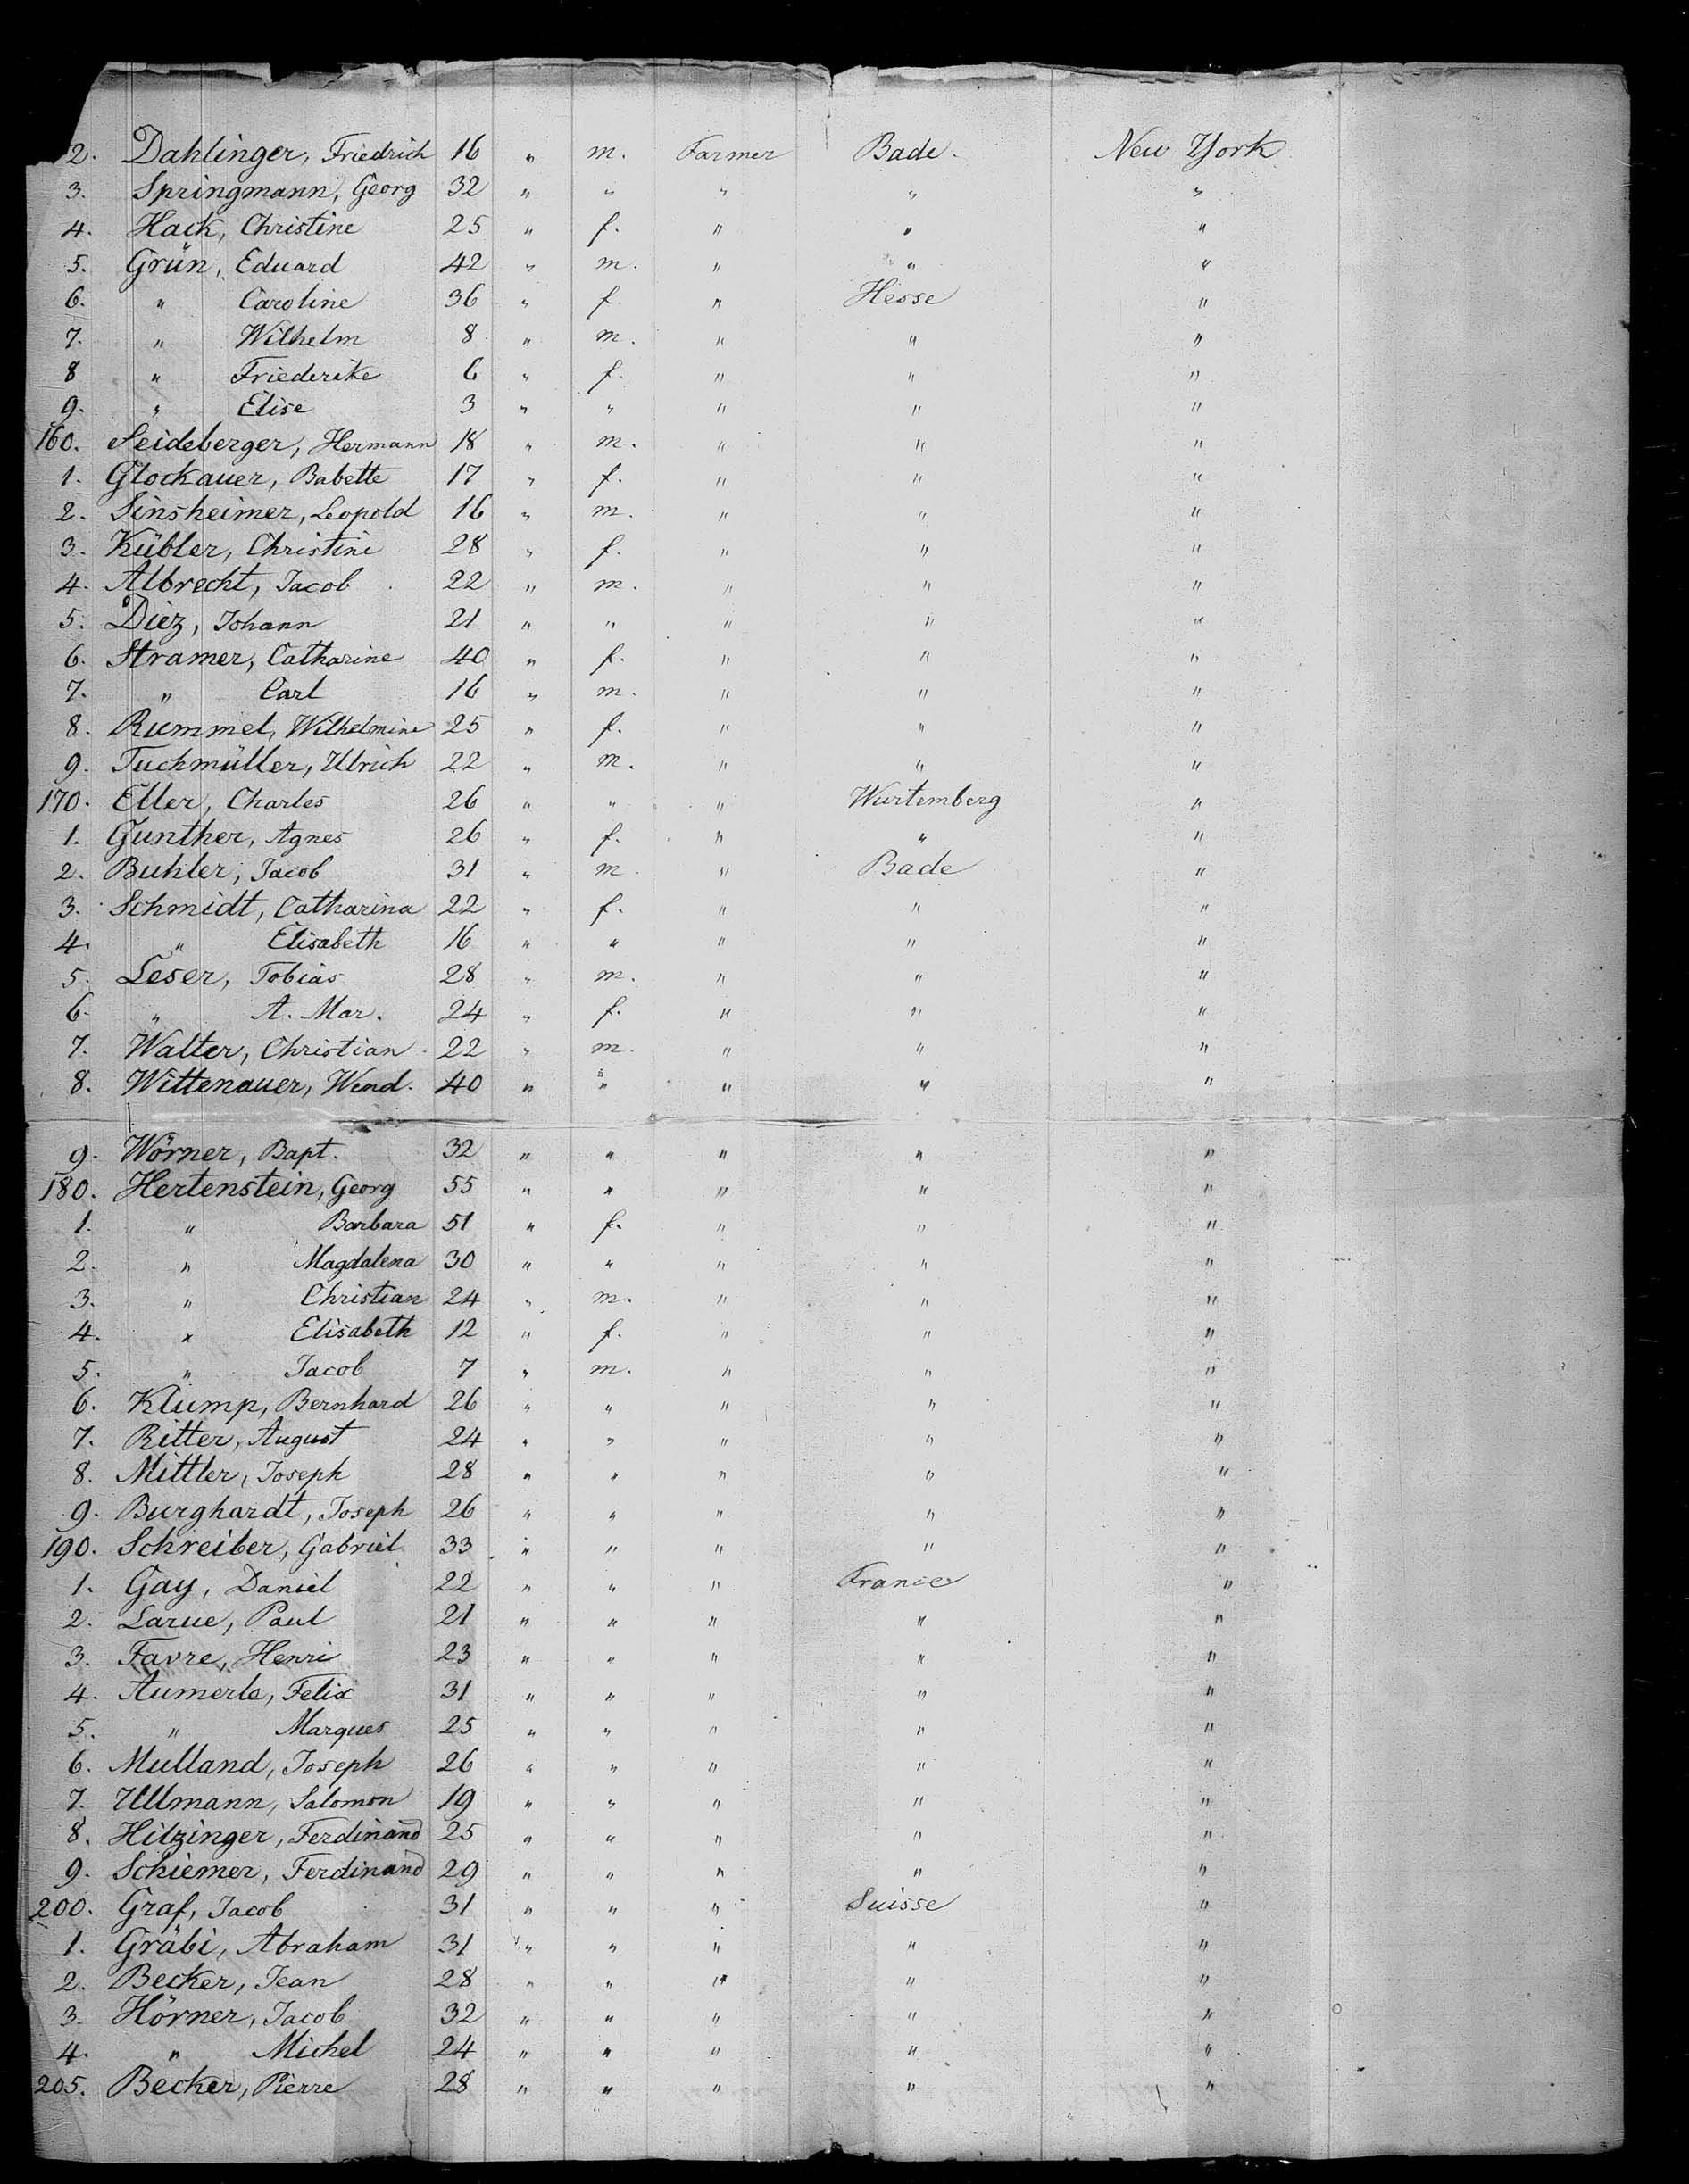 2. Dahlinger, Friedrich 16 " m. Farmer Bade. New York
3. Springmann, Georg 32 " " " " "
4. Hack, Christine 25 " f. " " "
5. Grün, Eduard 42 " m. " " "
6. " Caroline 36 " f " Hesse "
7. " Wilhelm 8 " m. " " "
8 " Friederike 6 " f. " " "
9. " Elise 3 " " " " "
160. Seideberger, Hermann 18 " m. " " "
1. Glockauer, Babette 17 " f. " " "
2. Sinsheimer, Leopold 16 " m. " " "
3. Kübler, Christine 28 " f. " " "
4. Albrecht, Jacob 22 " m. " " "
5. Diez, Johann 21 " " " " "
6. Stramer, Catharine 40 " f. " " "
7. " Carl 16 " m. " " "
8. Rummel, Wilhelmine 25 " f. " " "
9. Tuchmüller, Ulrich 22 " m. " " "
170. Eller, Charles 26 " " " Wurtemberg "
1. Gunther, Agnes 26 " f. " " "
2. Buhler, Jacob 31 " m " Bade "
3. Schmidt, Catharina 22 " f. " " "
4. " Elisabeth 16 " " " " "
5. Leser, Tobias 28 " m. " " "
6. " A. Mar. 24 " f. " " "
7. Walter, Christian 22 " m. " " "
8. Wittenauer, Wend. 40 " " " " "
9. Wörner, Bapt. 32 " " " " "
180. Hertenstein, Georg 55 " " " " "
1. " Barbara 51 " f. " " "
2. " Magdalena 30 " " " " "
3. " Christian 24 " m. " " "
4. " Elisabeth 12 " f. " " "
5. " Jacob 7 " m. " " "
6. Klump, Bernhard 26 " " " " "
7. Ritter, August 24 " " " " "
8. Mittler, Joseph 28 " " " " "
9. Burghardt, Joseph 26 " " " " "
190. Schreiber, Gabriel 33 " " " " "
1. Gay, Daniel 22 " " " France "
2. Larue, Paul 21 " " " " "
3. Favre, Henri 23 " " " " "
4. Aumerle, Felix 31 " " " " "
5. " Marques 25 " " " " "
6. Mulland, Joseph 26 " " " " "
7. Ullmann, Salomon 19 " " " " "
8. Hitzinger, Ferdinand 25 " " " " "
9. Schiemer, Ferdinand 29 " " " " "
200. Graf, Jacob 31 " " " Suisse "
1. Gräbi, Abraham 31 " " " " "
2. Becker, Jean 28 " " " " "
3. Hörner, Jacob 32 " " " " "
4. " Michel 24 " " " " "
205. Becker, Pierre 28 " " " " "